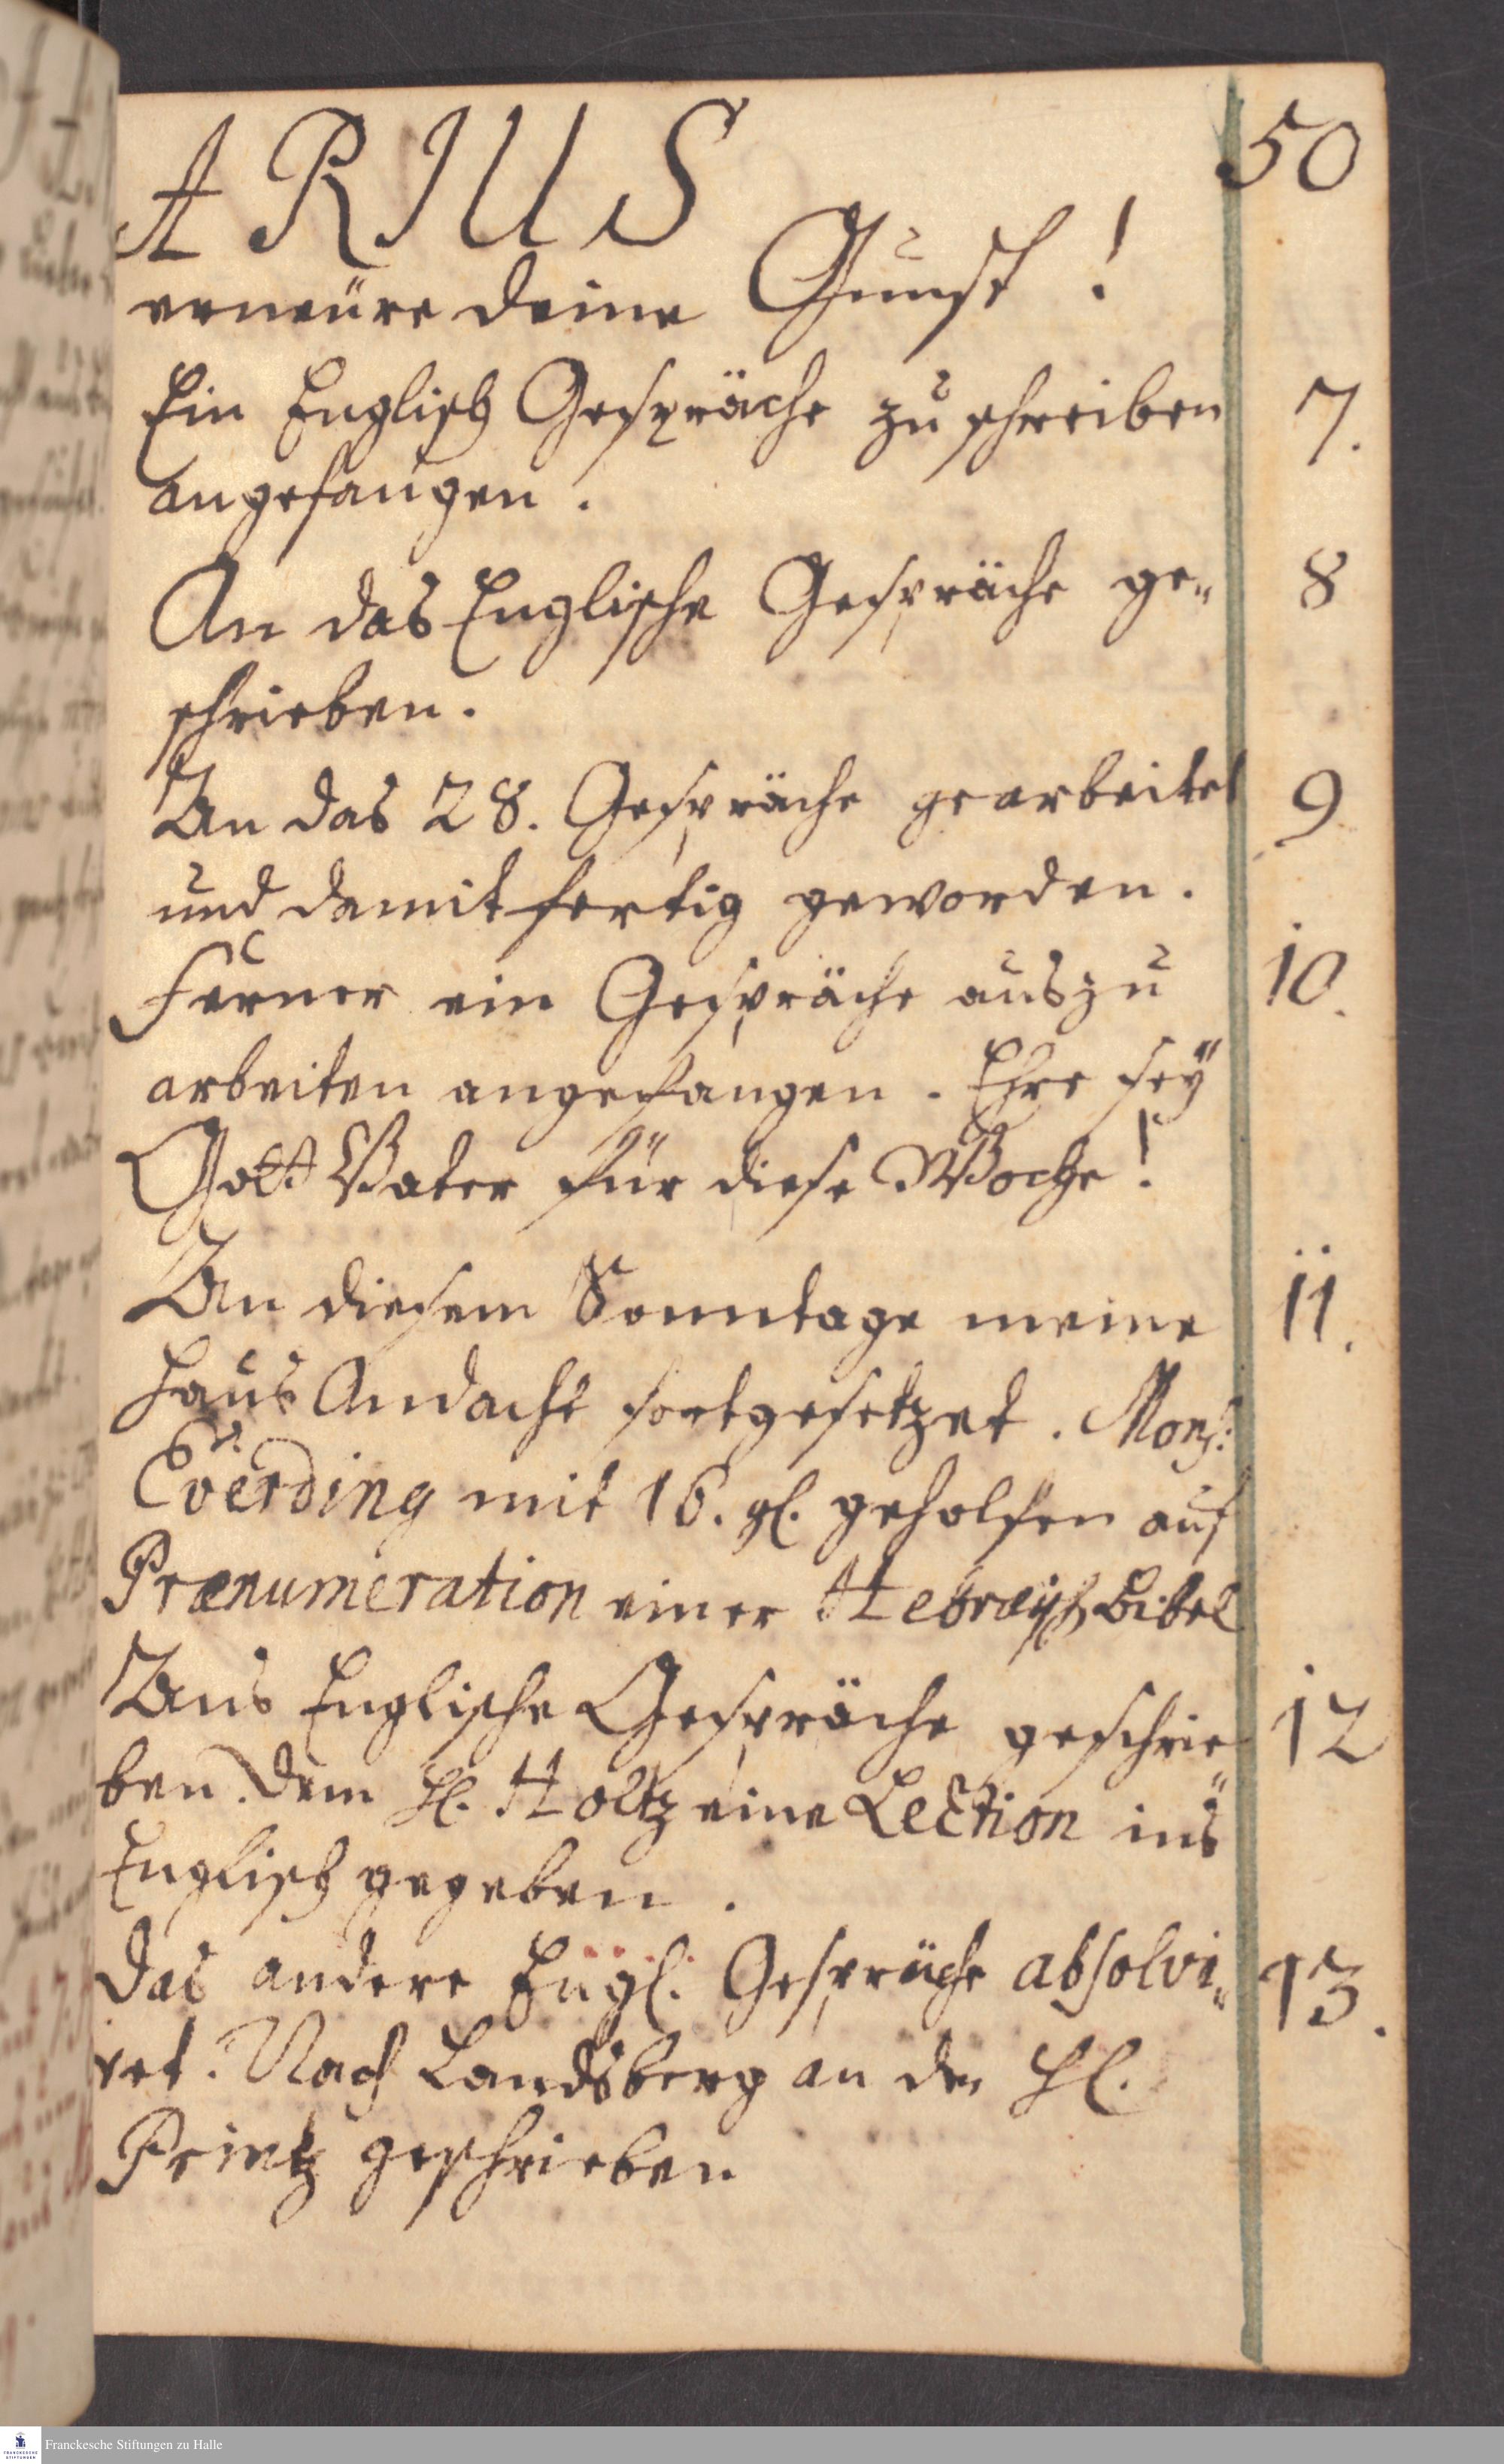 50
ARIUS
erneüre deine Gunst!
Ein Englisch Gespräche zu schreiben 7.
angefangen.
An das Englische Gespräche ge„ 8
schrieben.
An das 28. Gespräche gearbeitet 9
und damit fertig geworden.
Ferner ein Gespräche auszu 10.
arbeiten angefangen. Ehre sey
Gott Vater für diese Woche!
An diesem Sonntage meine 11.
Haus Andacht fortgesetzet. Mons:
Everding mit 16. gl. geholfen auf
Prænumeration einer Hebræisch Bibel
Ans Englische Gespräche geschrie 12
ben. Dem Hl. Holtz eine Lection ins
Englisch gegeben.
Das andere Engl. Gespräche absolvi„ 13.
ret. Nach Landsberg an den Hl.
Printz geschrieben
Franckesche Stiftungen zu Halle